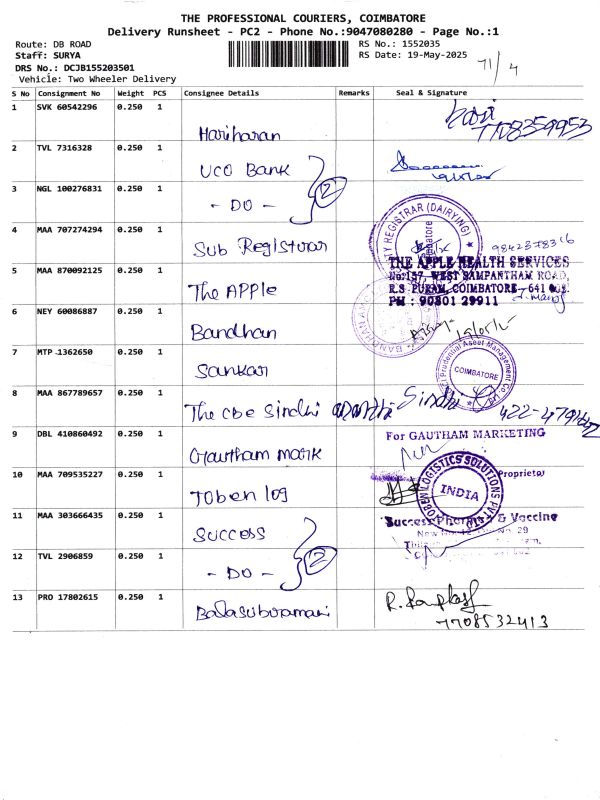 THE PROFESSIONAL COURIERS, COIMBATORE
Delivery Runsheet - PC2 - Phone No.:9047080280 - Page No.:1
Route: DB ROAD
RS No.: 1552035
Staff: SURYA
RS Date: 19-May-2025
71/4
DRS No.: DCJB155203501
Vehicle: Two Wheeler Delivery
S No Consignment No Weight PCS Consignee Details Remarks Seal & Signature
1 SVK 60542296 0.250 1
Hariharan
7708359953
2 TVL 7316328 0.250 1
UCO Bank
2
3 NGL 100276831 0.250 1
- DO -
4 MAA 707274294 0.250 1
Sub Registrar
9842378316
5 MAA 870092125 0.250 1
The APPle
THE APPLE HEALTH SERVICES
No:157, WEST SAMPANTHAM ROAD,
R.S PURAM, COIMBATORE - 641 002.
PH : 90801 29911
6 NEY 60086887 0.250 1
Bandhan
7 MTP 1362650 0.250 1
Sankar
Prudential Asset Management
COIMBATORE
8 MAA 867789657 0.250 1
The cbe Sindhi
Sindhi
9 DBL 410860492 0.250 1
Gautham mark
For GAUTHAM MARKETING
Proprietor
10 MAA 709535227 0.250 1
Toben log
TOBEN LOGISTICS SOLUTIONS PVT
INDIA
11 MAA 303666435 0.250 1
SUCCESS
Success Pharma & Vaccine
2
12 TVL 2906859 0.250 1
- DO -
13 PRO 17802615 0.250 1
Balasubramani
7708532413